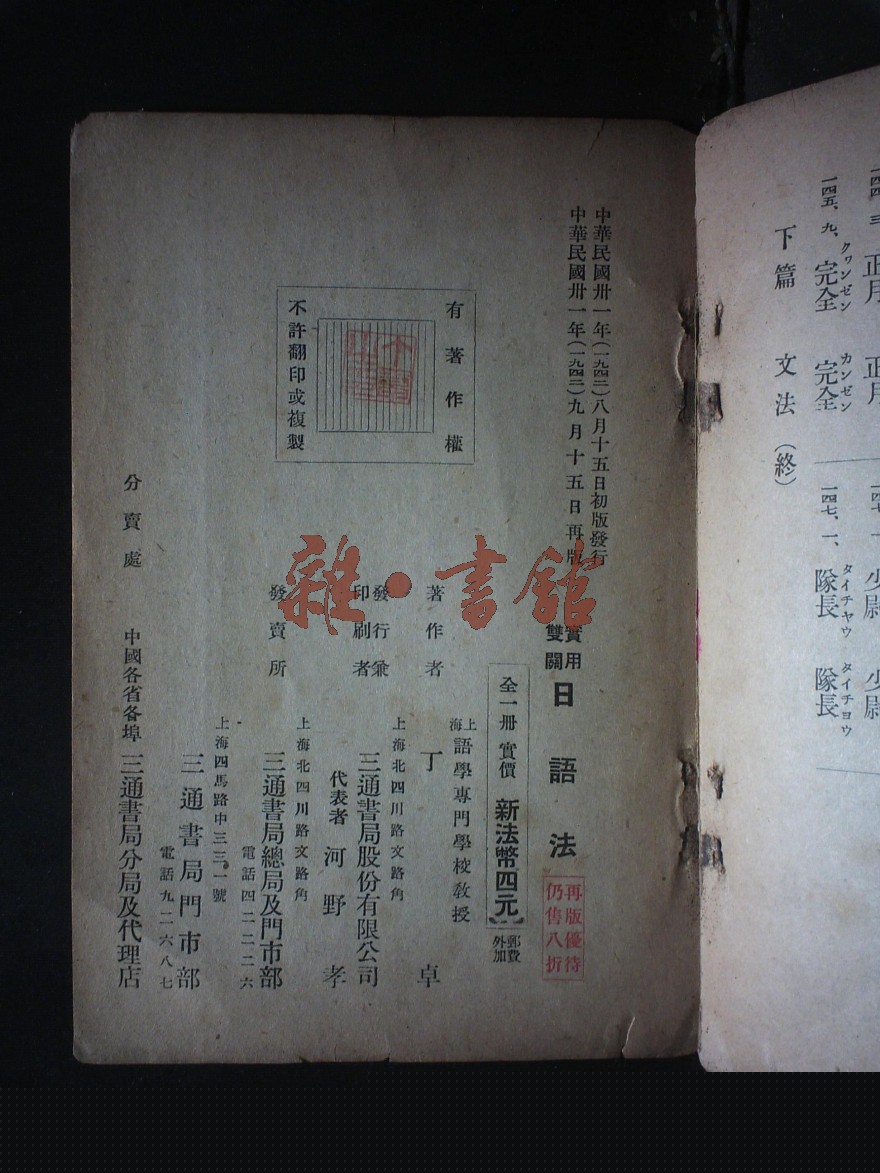 正月 正月
一四五、九、完全 完全
クワンゼン カンゼン
下篇 文法(終)
一四七、一、隊長 隊長
タイチヤウ タイチヨウ
少尉 少尉
中華民國卅一年(一九四二)八月十五日初版發行
中華民國卅一年(一九四二)九月十五日再版
實用
雙關
日語法
再版優待
仍售八折
全一册 實價 新法幣四元
郵費
外加
有著作權
不許翻印或複製
著作者
上海語學專門學校教授
丁卓
發行兼
印刷者
上海北四川路文路角
三通書局股份有限公司
代表者 河野孝
發賣所
上海北四川路文路角
三通書局總局及門市部
電話四二二二六
上海四馬路中三三一號
三通書局門市部
電話九二六八七
分賣處 中國各省各埠 三通書局分局及代理店
雜·書館